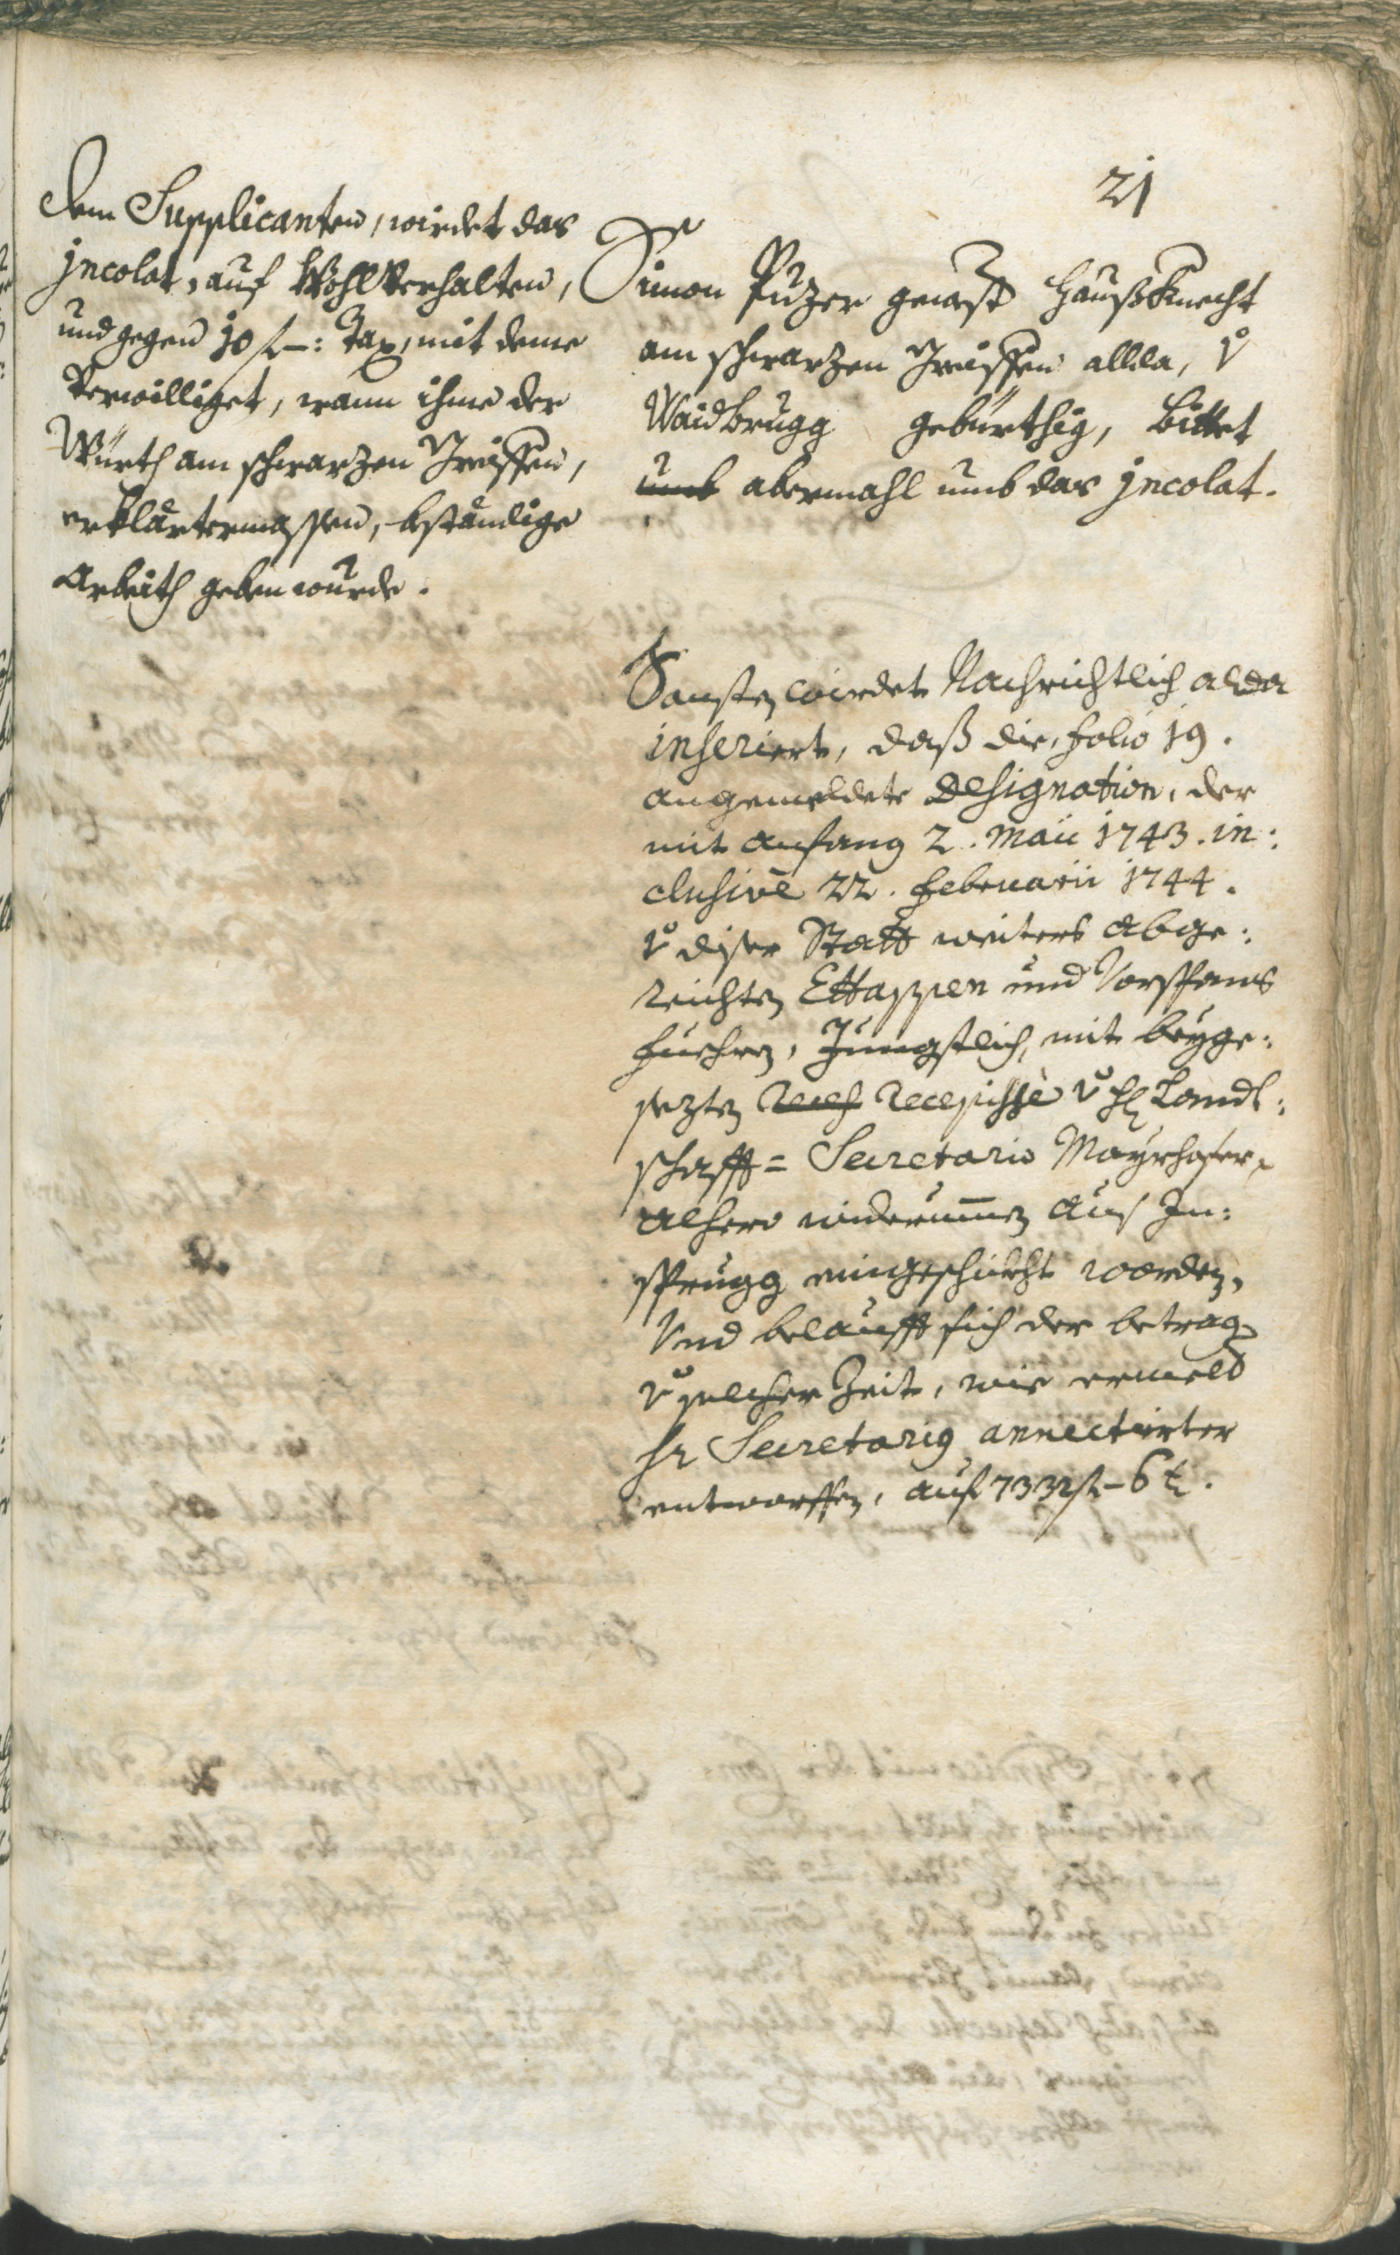 21
Dem Supplicanten, wirdet das
jncolat, auf Wohlverhalten,
und gegen 10 f –: Tax, mit deme
verwilliget, wann ihme der
Würth am schwarzen Greiffen,
erklärtermassen, bständige
Arbeith geben wurde.
Simon Puzer gewest Haußknecht
am schwarzen Greiffen allda, v
Waidbrugg gebürthig, bittet
umb abermahl umb das jncolat.
Sonsten wirdet Nachrichtlich alda
inseriert, daß die, folio 19.
angemeldete Designation, der
mit anfang 2. Maii 1743. in:
clusivè 22. Februarii 1744.
v diser Statt weiters abge:
reichten Ettappen und Vorspans
fuehren, Jüngstlich, mit beyge:
sezten recep recepisse v H Landt:
schafft= Secretario Mayrhofer,
alhero widerumen aus Jn:
sprugg eingeschickht worden,
Und belaufft sich der betrag
v solcher Zeit, wie ermelt
Hr Secretarius annectirter
entworffen, auf 7332 f – 6 k.